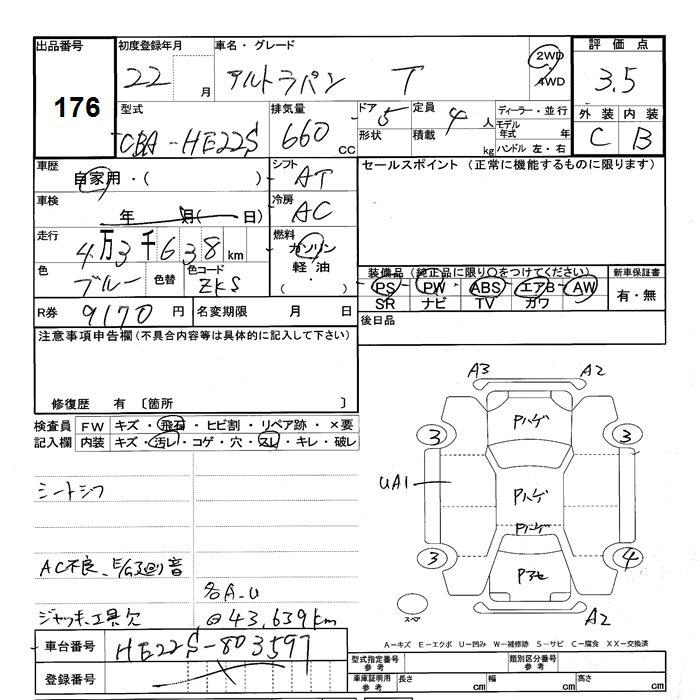 出品番号 初度登録年月 車名・グレード 2WD 4WD 評価点
176 22 月 アルトラパン T 3.5
型式 排気量 ドア 5 定員 4 人 ディーラー・並行 外装 内装
CBA-HE22S 660 CC 形状 積載 kg モデル年式 年 C B
ハンドル 左・右
車歴 自家用・( ) シフト AT セールスポイント (正常に機能するものに限ります)
車検 年 月( 日) 冷房 AC
走行 4万3千638km 燃料 ガソリン
軽油
・( )
色 ブルー 色替 色コード ZKS
装備品 (純正品に限り○をつけてください) 新車保証書
PS PW ABS エアB AW 有・無
SR ナビ TV カワ
R券 9170 円 名変期限 月 日 後日品
注意事項申告欄(不具合内容等は具体的に記入して下さい)
修復歴 有 〔箇所 〕
検査員 FW キズ・飛石・ヒビ割・リペア跡・×要
記入欄 内装 キズ・汚レ・コゲ・穴・スレ・キレ・破レ
シートシワ
AC不良、E/G回り音
各A.U
ジャッキ、工具欠 @43,639km
A3 A2
Pハゲ
3 3
UA1 Pハゲ
Pハゲ
3 4
Pアセ
スペア A2
A-キズ E-エクボ U-凹み W-補修跡 S-サビ C-腐食 XX-交換済
車台番号 HE22S-803597
登録番号
型式指定番号 参考 類別区分番号 参考
車庫証明用 参考 長さ cm 幅 cm 高さ cm